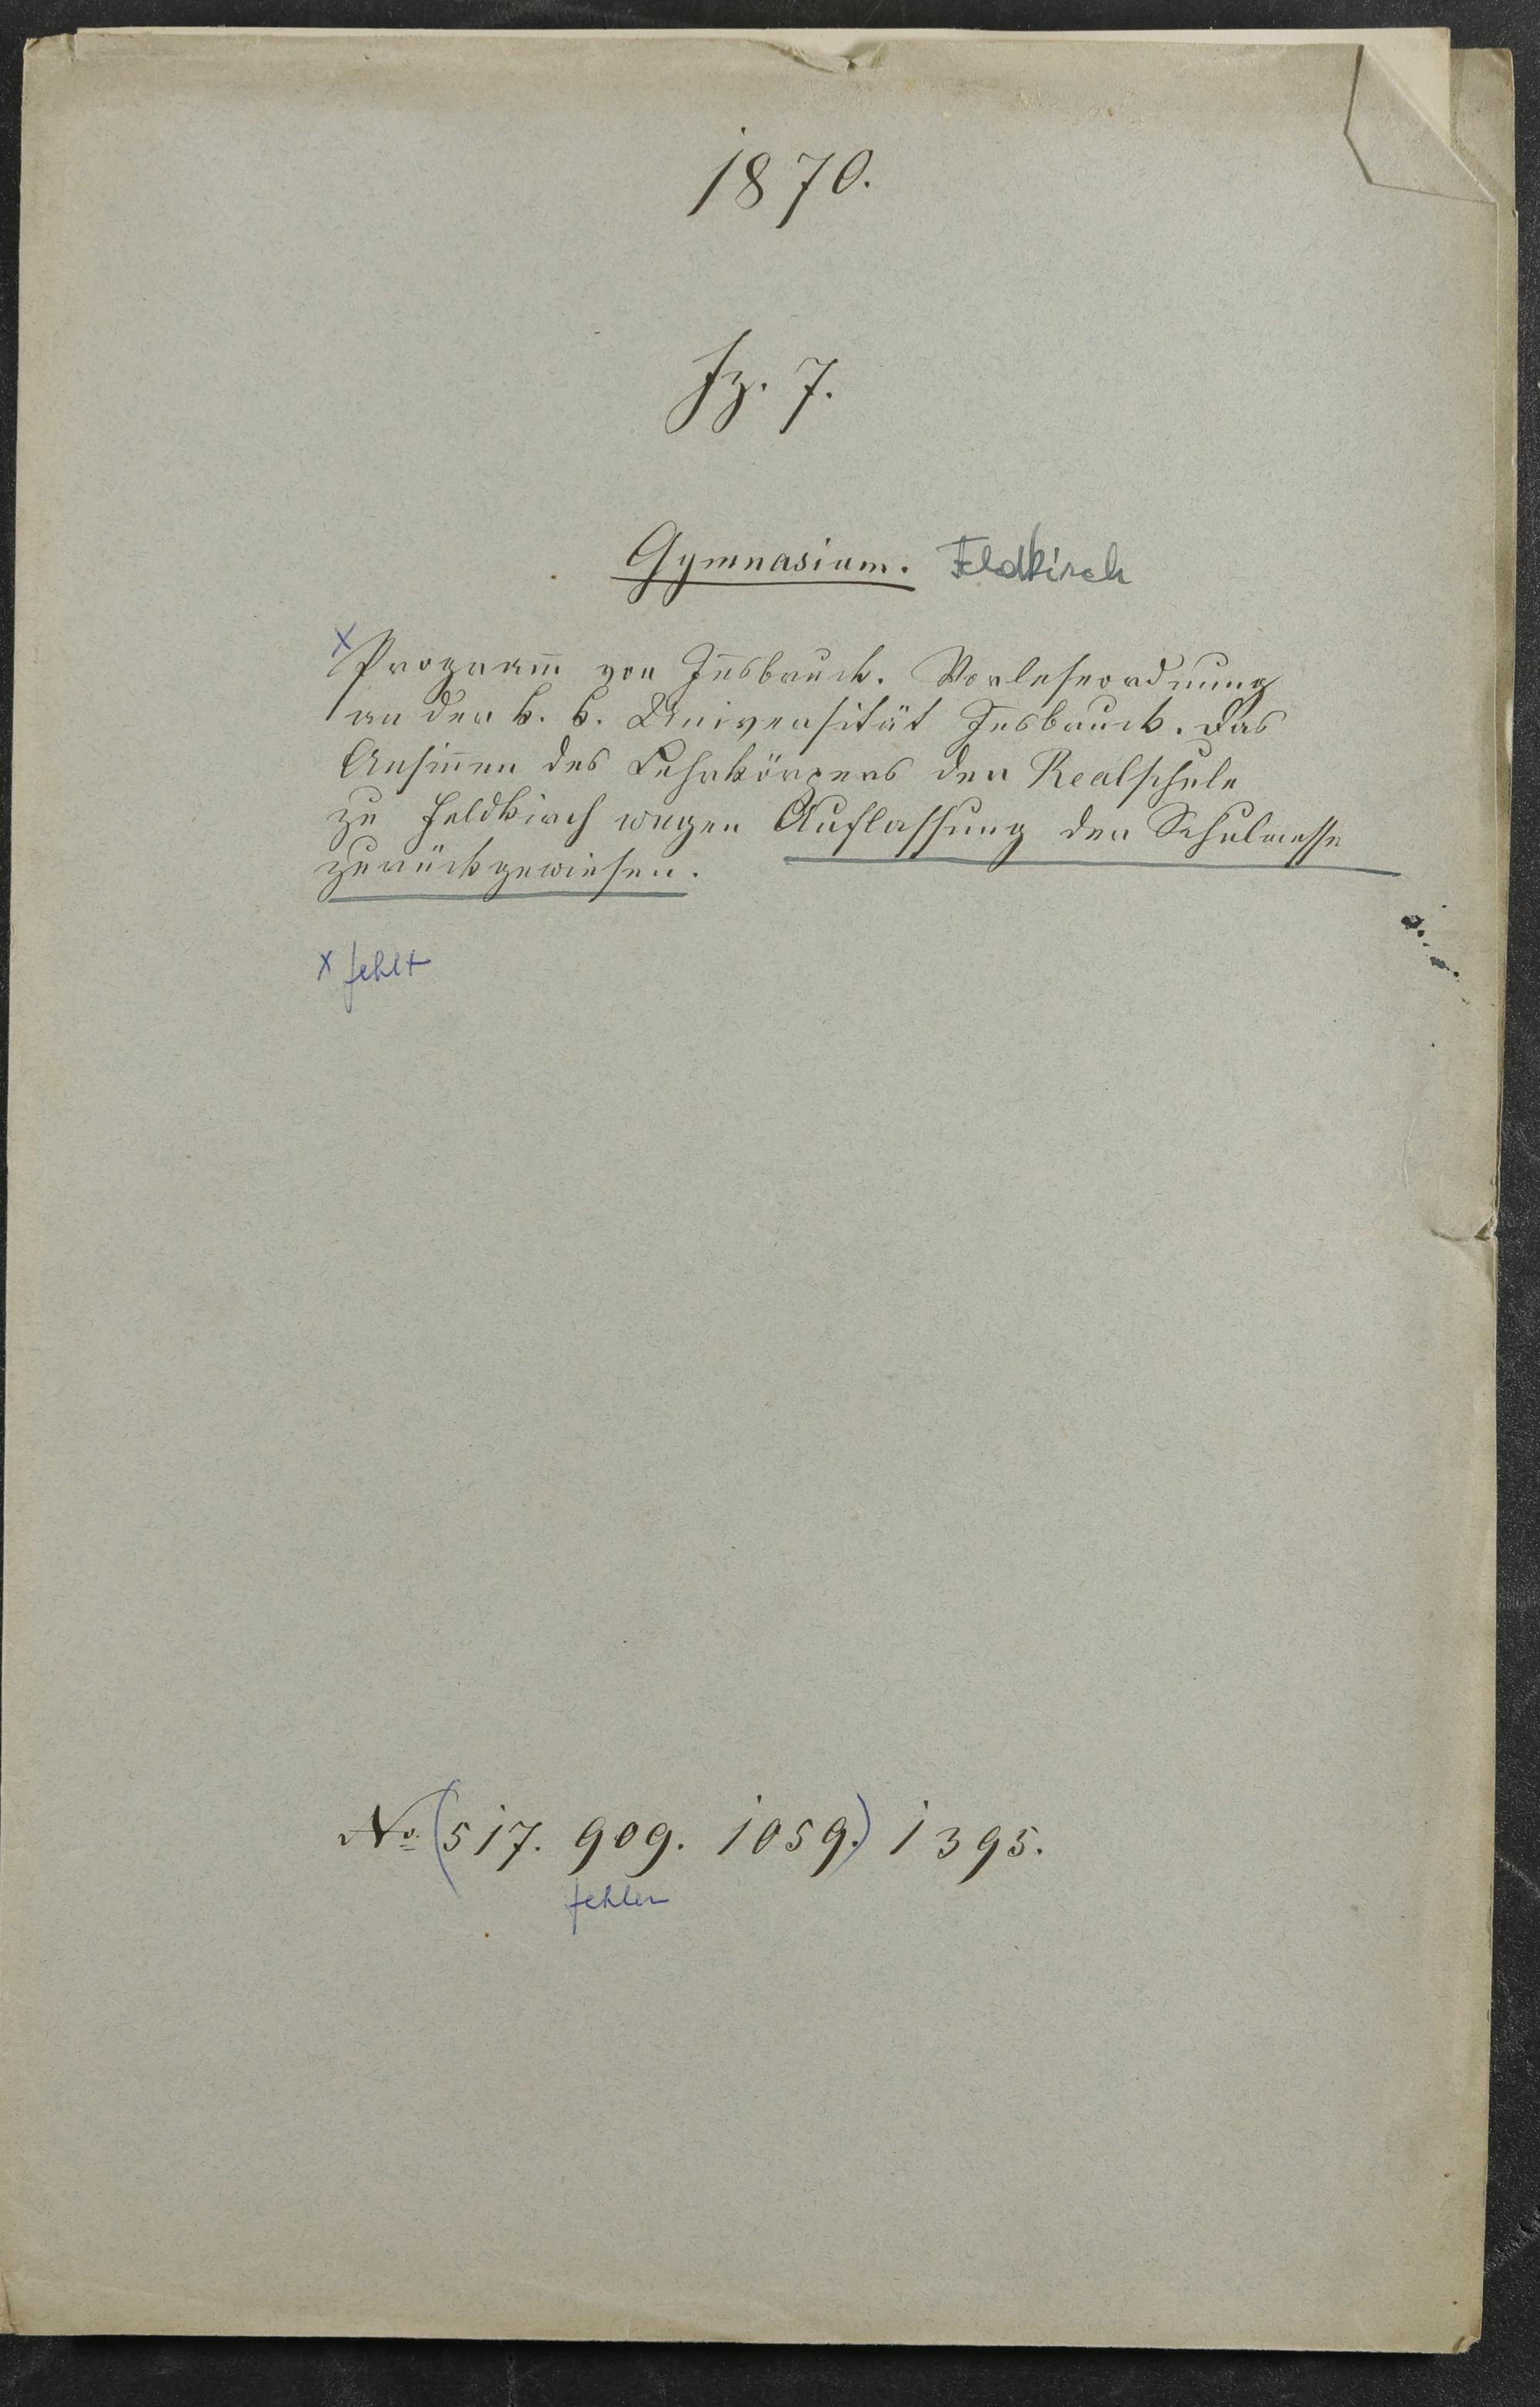 1870.
Fz. 7.
Gymnasium. Feldkirch
x Programm̄ von In̄sbruck. Vorleseordnung
an der k. k. Universität Insbruck. Das
Ansin̄en des Lehrkörpers der Realschule
zu Feldkirch wegen Auflassung der Schulmesse
zurückgewiesen.
x fehlt
No. (517. 909. 1059.) 1395.
fehlen